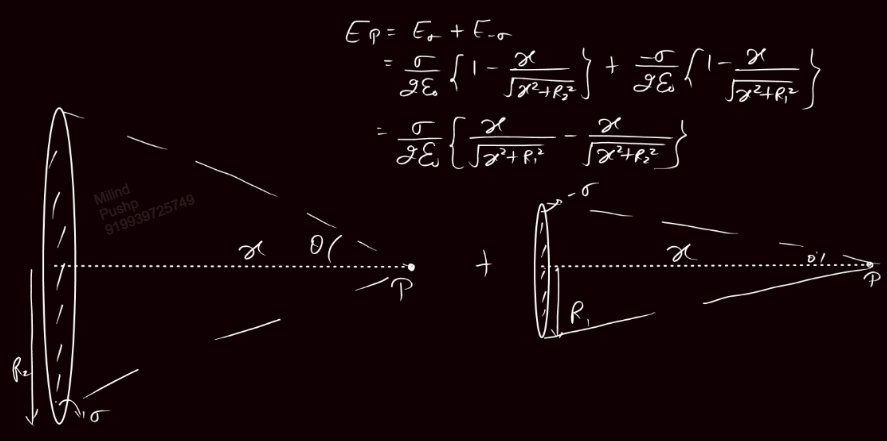 E_P = E_σ + E_-σ
= σ/2ε₀ { 1 - x/√(x²+R₂²) } + -σ/2ε₀ { 1 - x/√(x²+R₁²) }
= σ/2ε₀ { x/√(x²+R₁²) - x/√(x²+R₂²) }
Milind
Pushp
919939725749
x θ
P
R₂
σ
+
-σ
x θ'
P
R₁